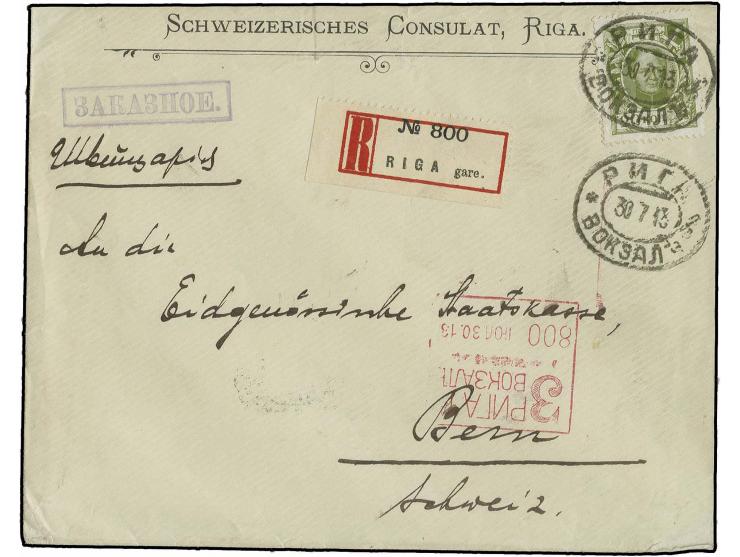 SCHWEIZERISCHES CONSULAT, RIGA.
РИГА
30 7 13
ВОКЗАЛ
ЗАКАЗНОЕ.
№ 800
R RIGA gare.
Швейцарія
РИГА
30 7 13
* ВОКЗАЛ
An die
Eidgenössische Staatskasse,
З РИГА
ВОКЗАЛ
ІЮЛ 30.13
800
Bern
Schweiz.